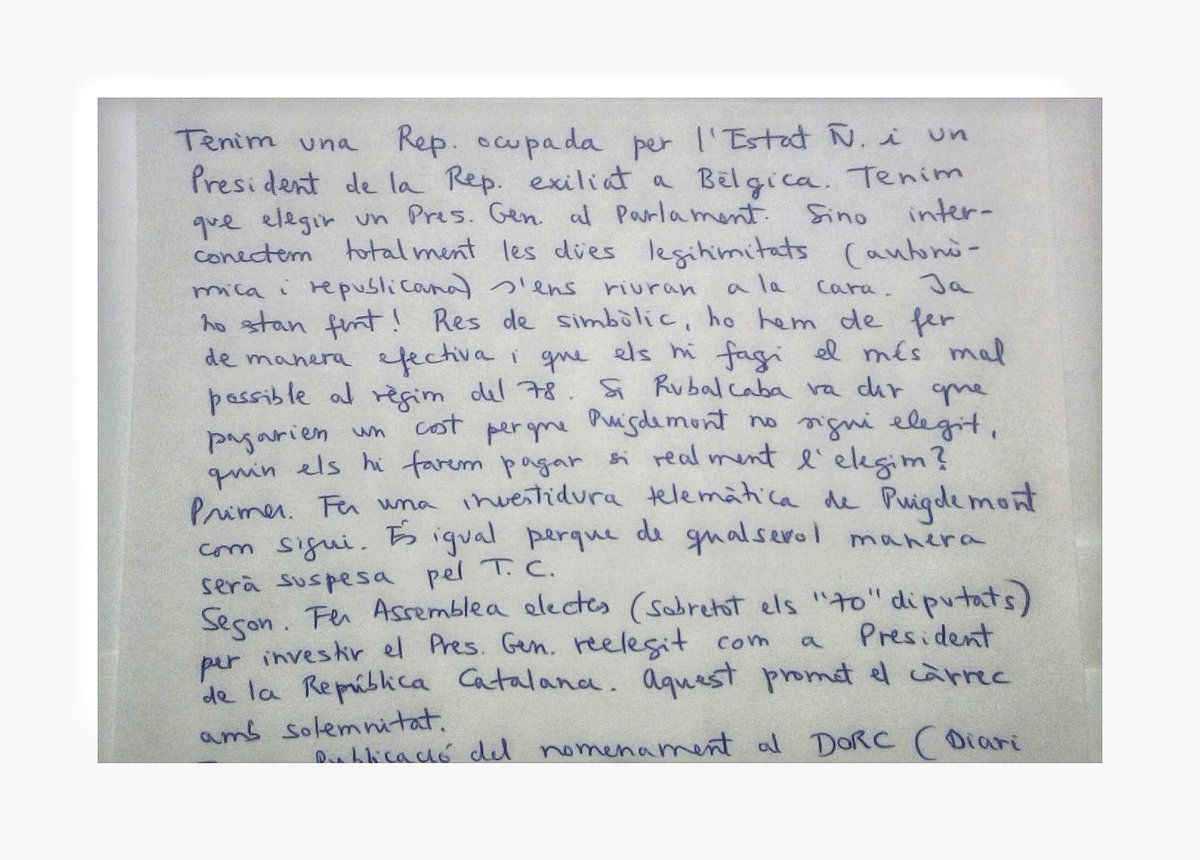 Tenim una Rep. ocupada per l'Estat Ñ. i un
President de la Rep. exiliat a Bèlgica. Tenim
que elegir un Pres. Gen. al Parlament. Sino inter-
conectem totalment les dües legitimitats (autonò-
mica i republicana) s'ens riuran a la cara. Ja
ho stan fent! Res de simbòlic, ho hem de fer
de manera efectiva i que els hi fagi el més mal
possible al règim del 78. Si Rubalcaba va dir que
pagarien un cost perque Puigdemont no sigui elegit,
quin els hi farem pagar si realment l'elegim?
Primer. Fer una investidura telemàtica de Puigdemont
com sigui. És igual perque de qualsevol manera
serà suspesa pel T.C.
Segon. Fer Assemblea electes (sobretot els "70" diputats)
per investir el Pres. Gen. reelegit com a President
de la República Catalana. Aquest promet el càrrec
amb solemnitat.
Publicació del nomenament al DORC (Diari